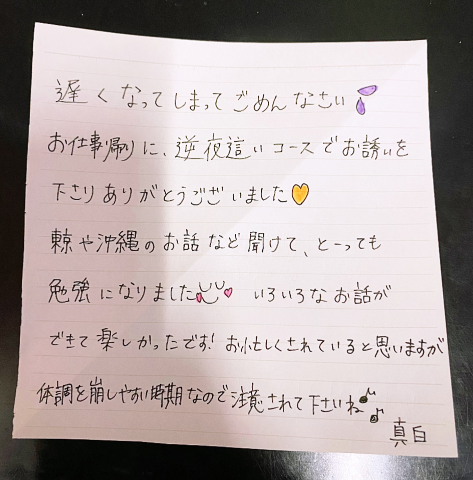 遅くなってしまってごめんなさい
お仕事帰りに、逆夜這いコースでお誘いを
下さりありがとうございました
東京や沖縄のお話など聞けて、とーっても
勉強になりました いろいろなお話が
できて楽しかったです! お忙しくされていると思いますが
体調を崩しやすい時期なので注意されて下さいね
真白